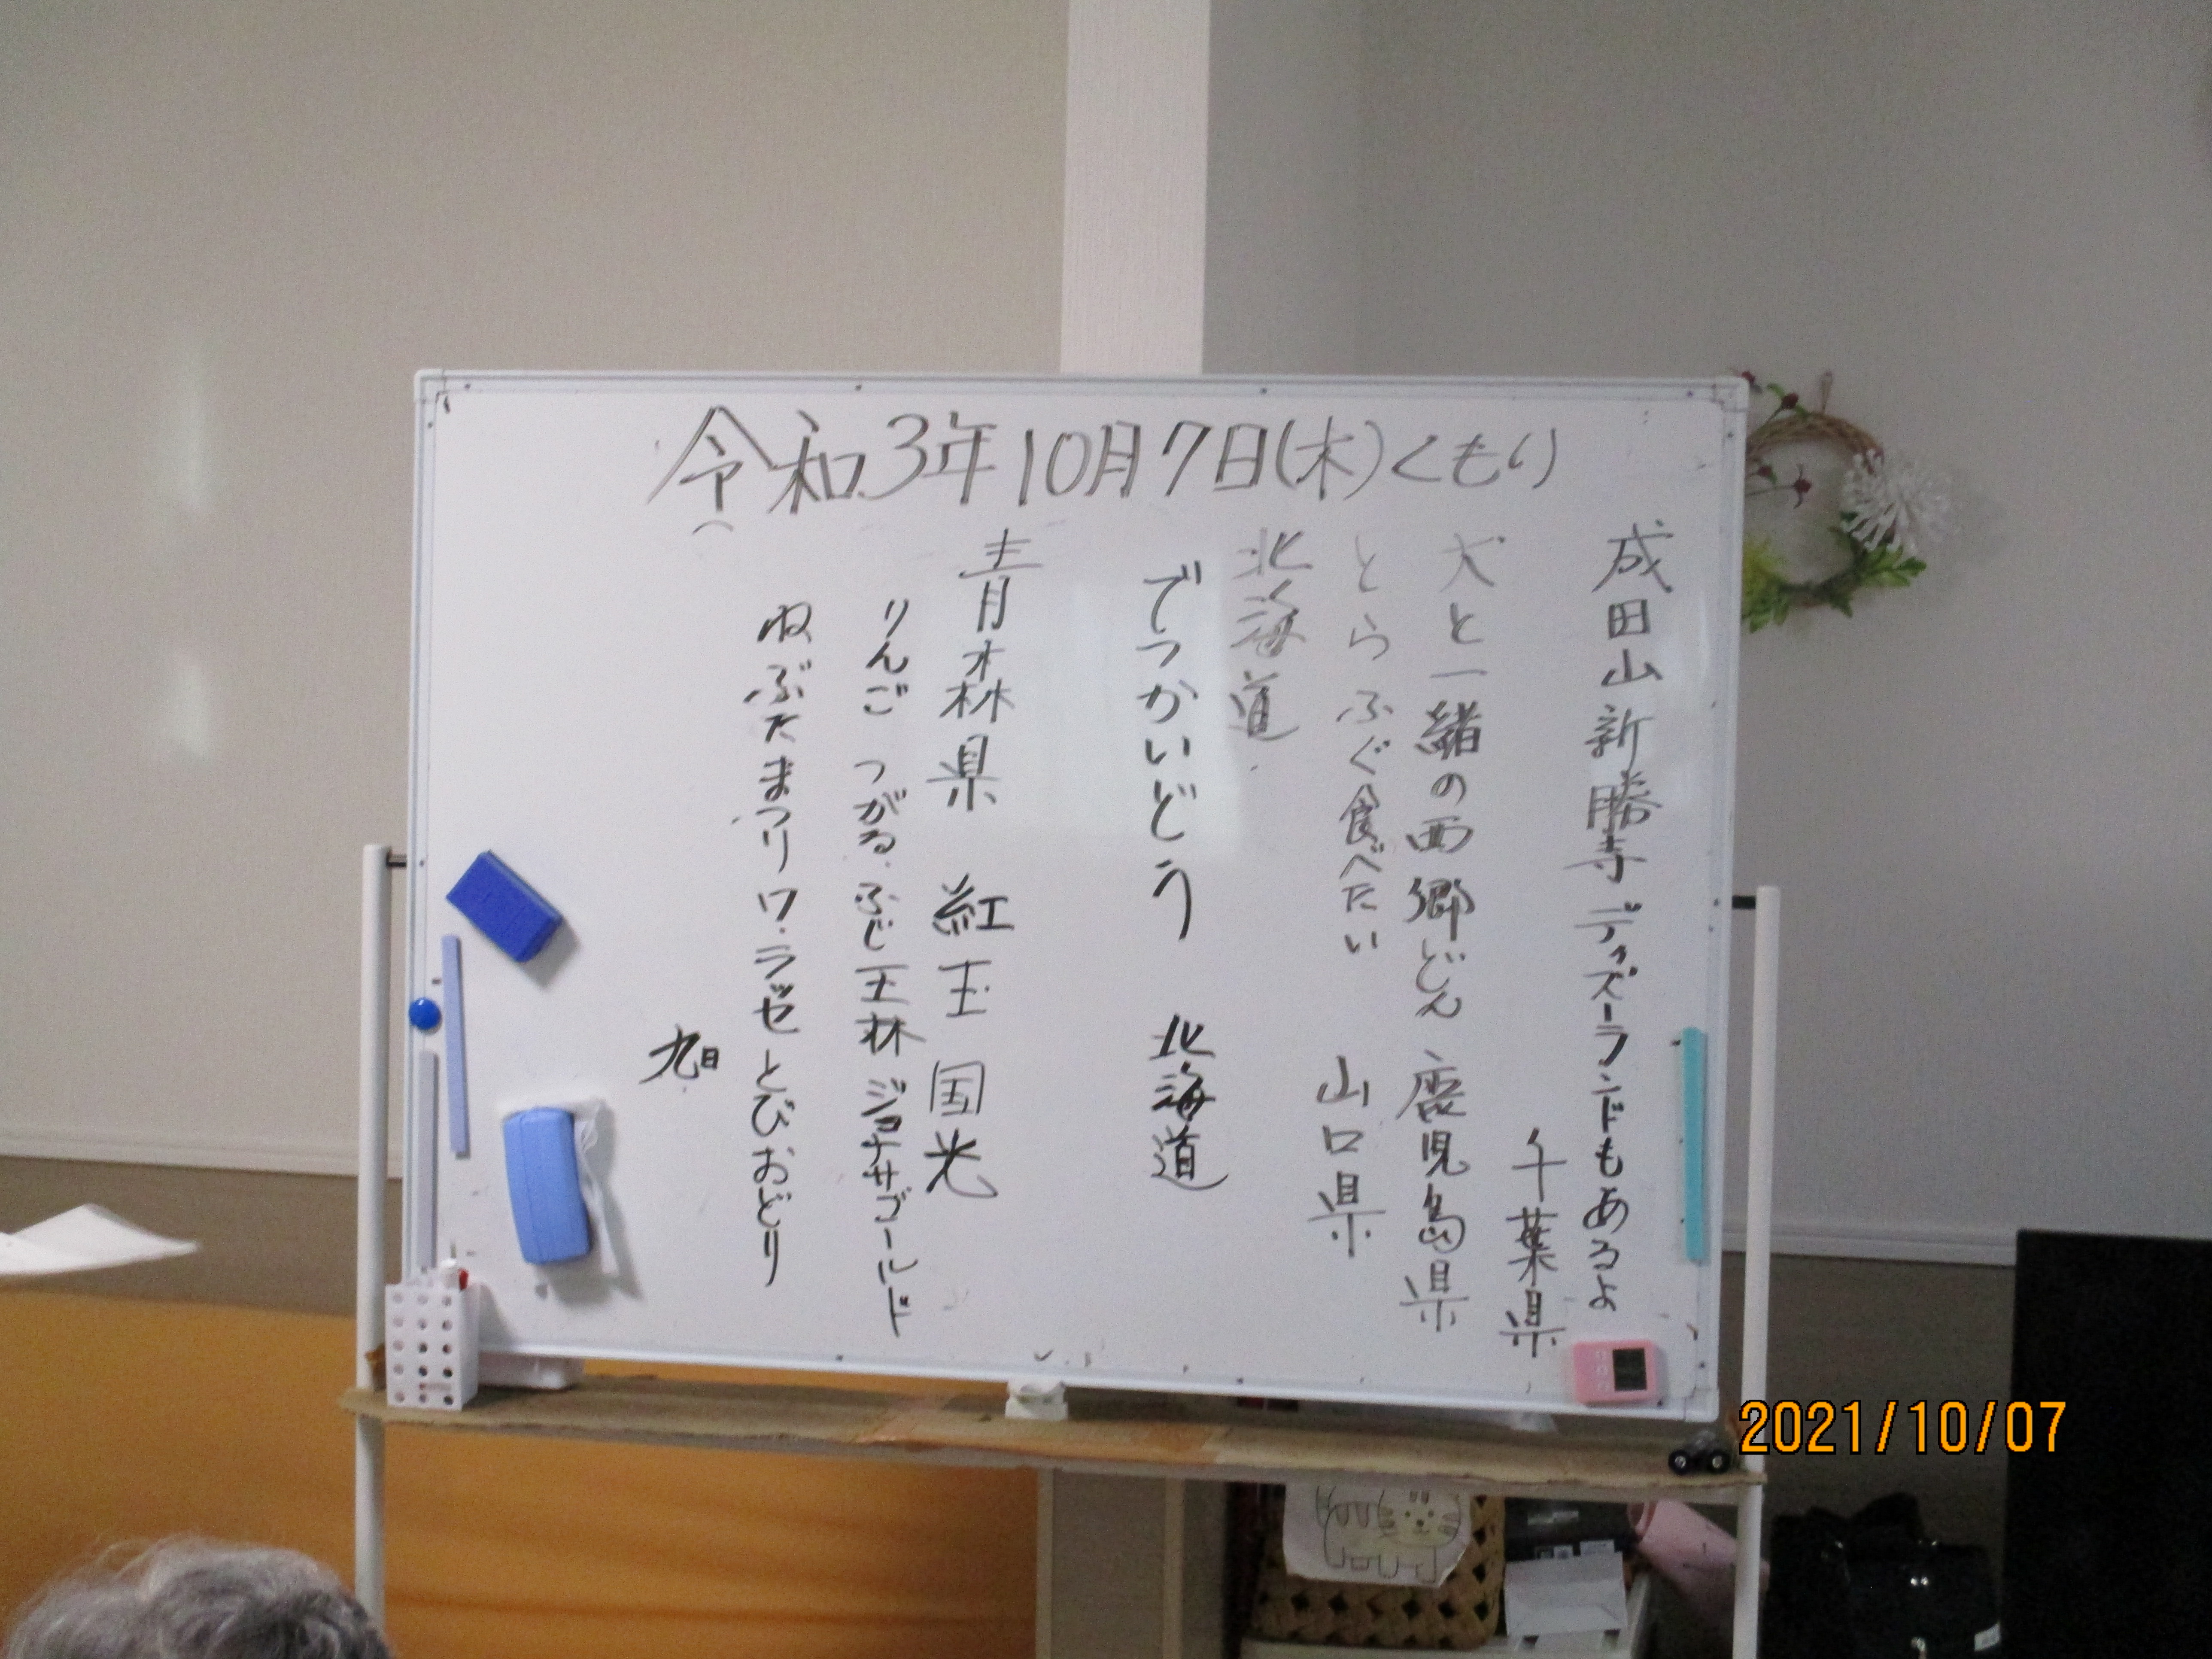 令和3年10月7日(木)くもり
成田山新勝寺 ディズーランドもあるよ
千葉県
犬と一緒の西郷どん 鹿児島県
とらふぐ食べたい 山口県
北海道
でっかいどう 北海道
青森県 紅玉 国光
りんご つがる.ふじ 王林 ジョナサゴールド
ねぶたまつり ワ・ラッセ とびおどり
旭
2021/10/07